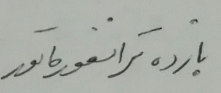 بازده ترانسفورماتور